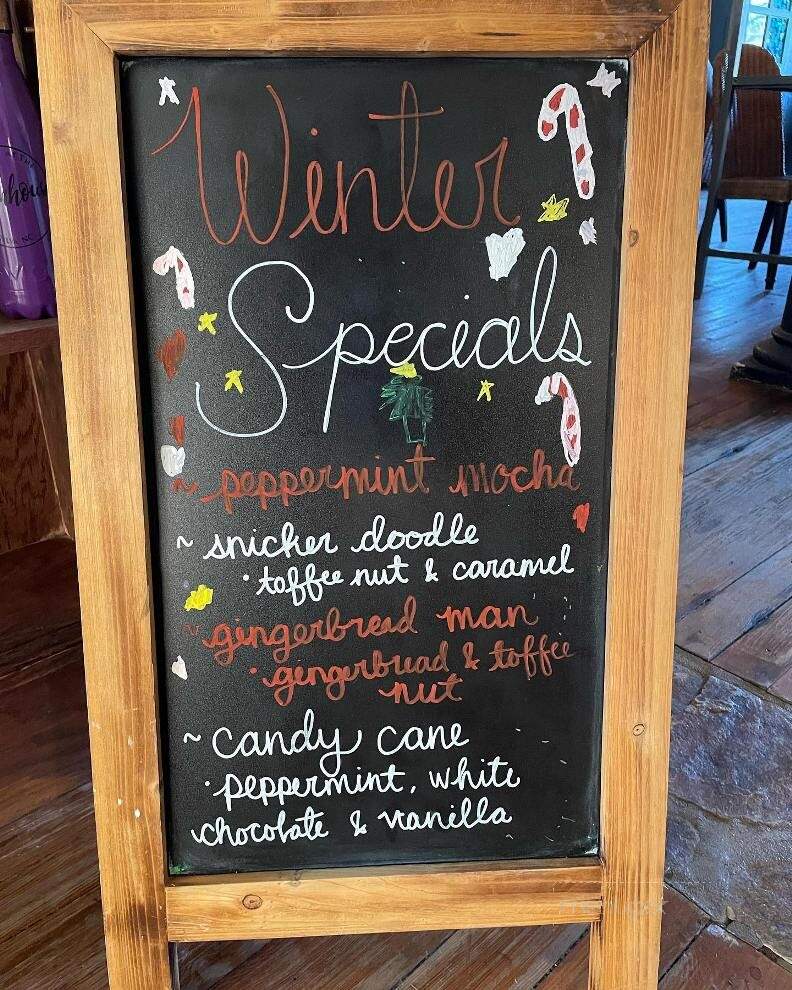 Winter
Specials
~ peppermint mocha
~ snicker doodle
• toffee nut & caramel
~ gingerbread man
• gingerbread & toffee
nut
~ candy cane
• peppermint, white
chocolate & vanilla